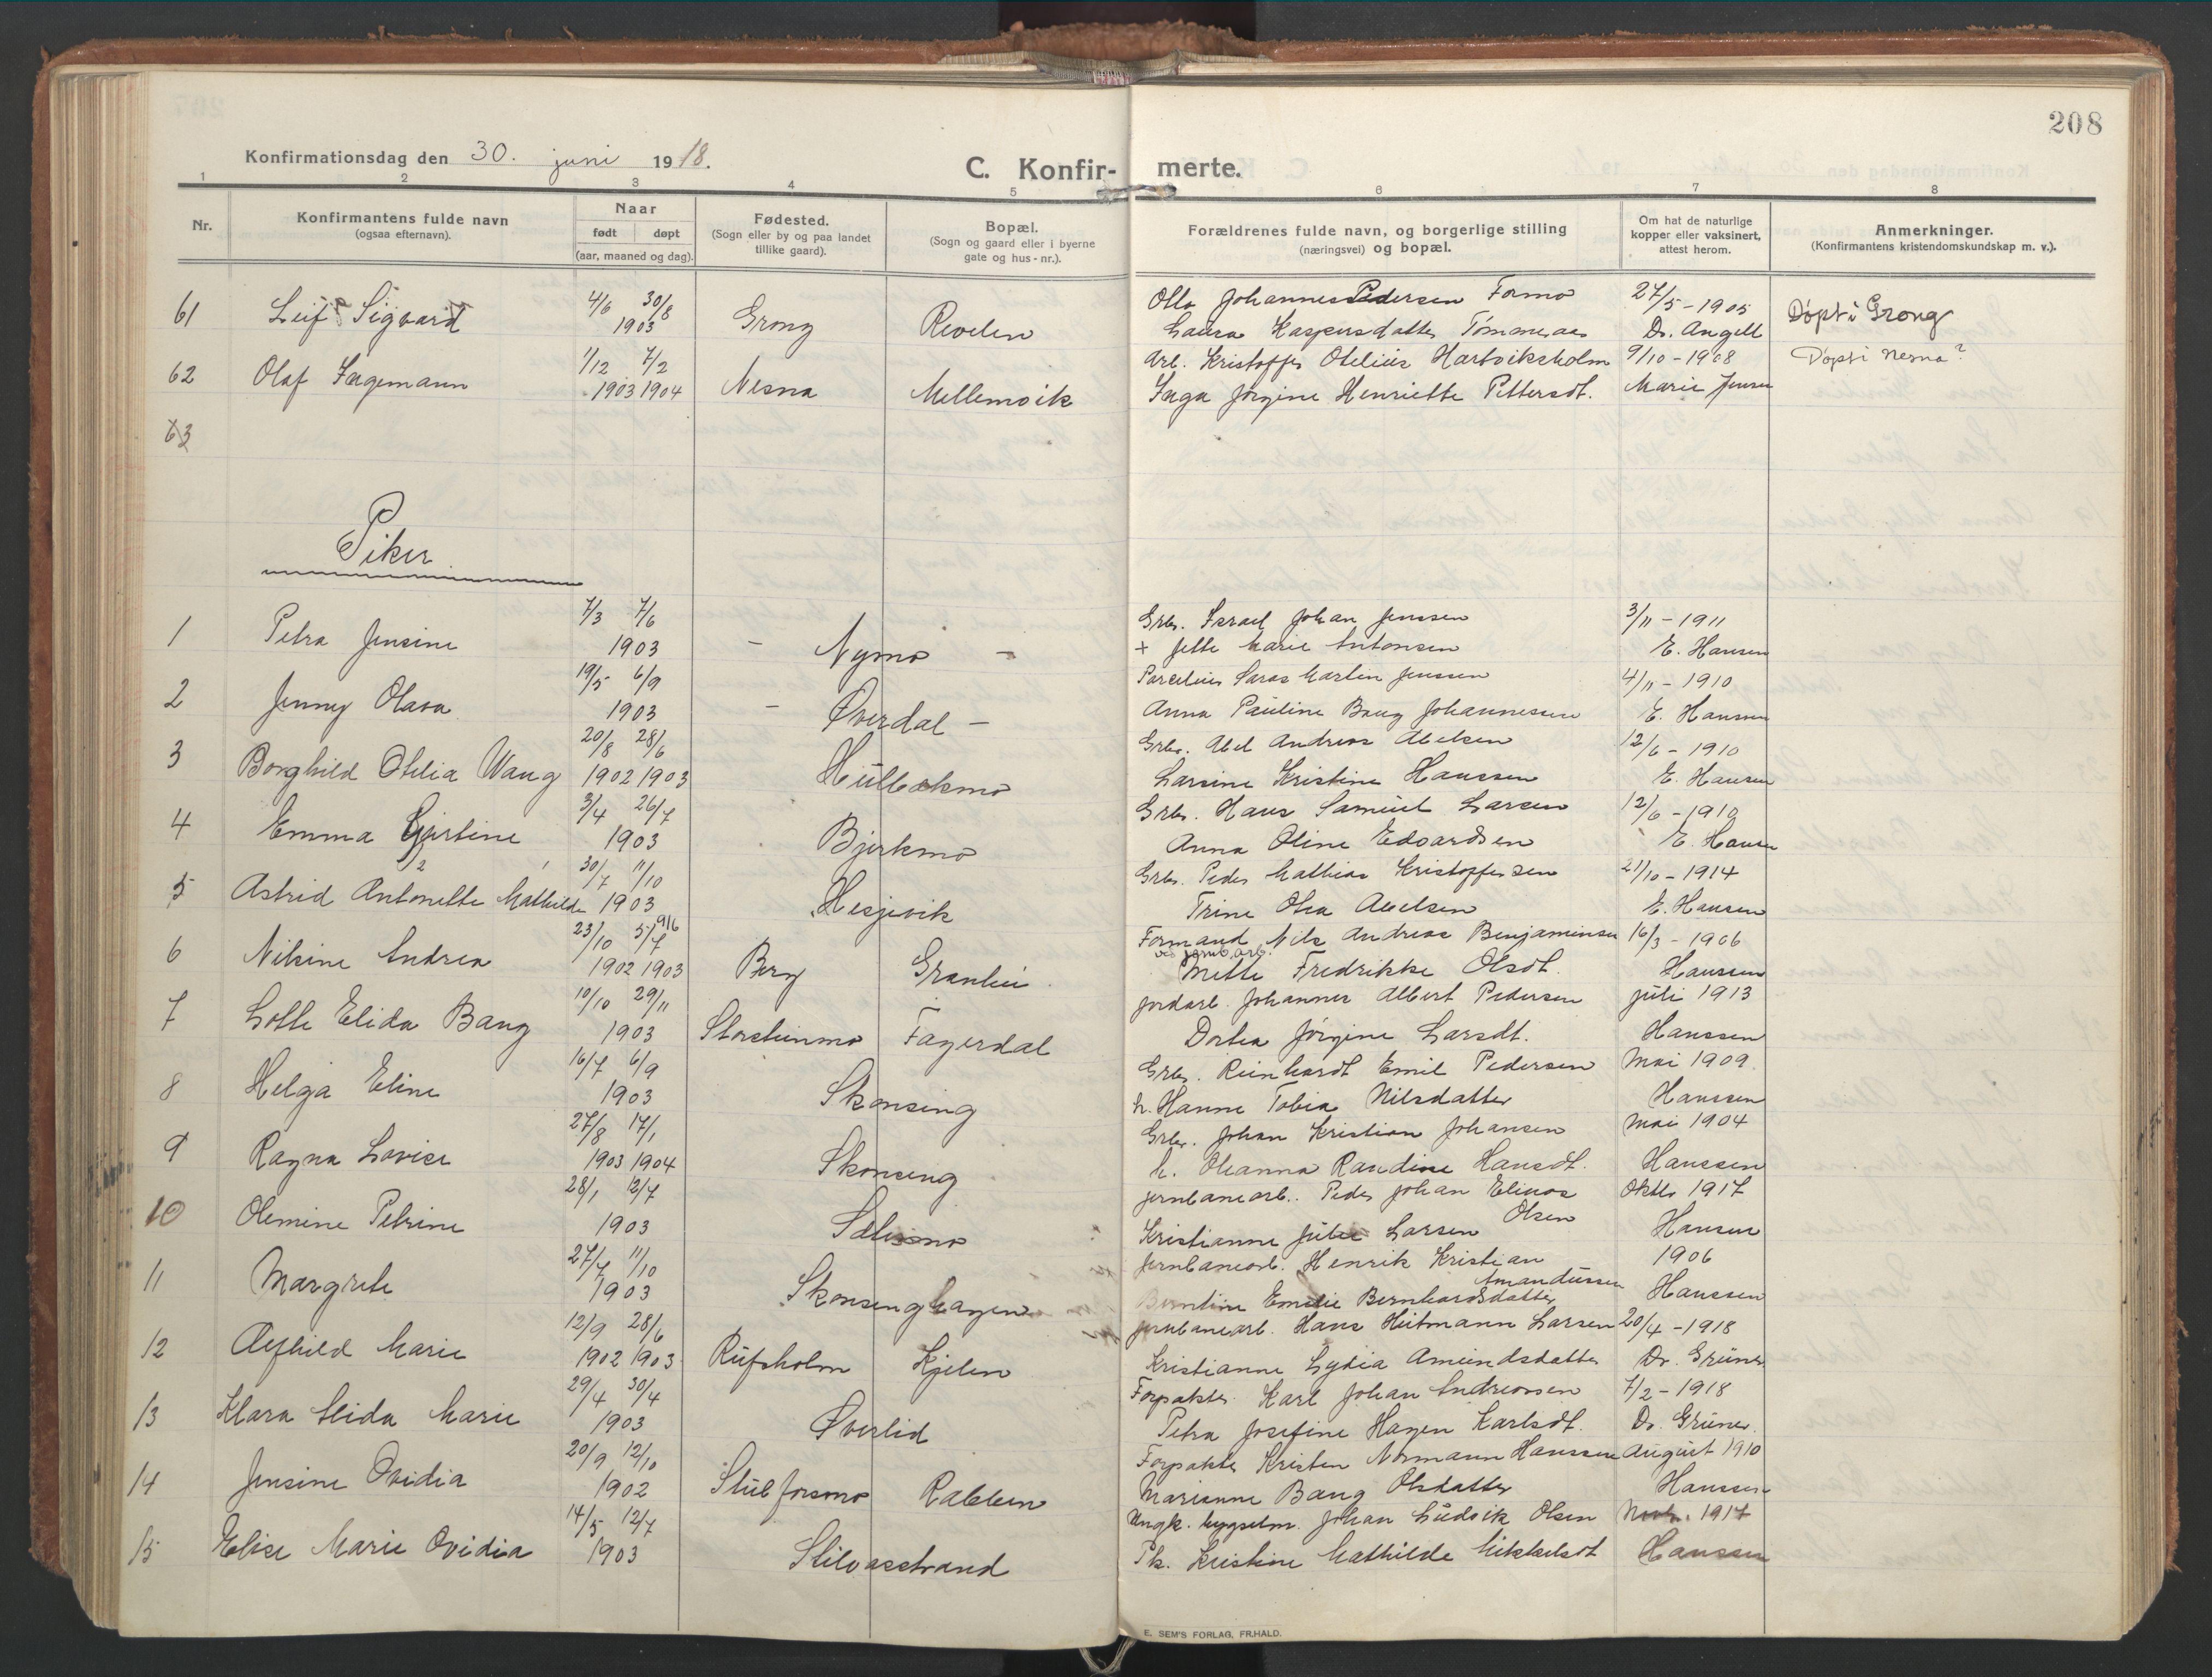 208
Konfirmationsdag den 30. juni 1918.
C. Konfir- merte.
1 2 3 4 5 6 7 8
Nr.
Konfirmantens fulde navn
(ogsaa efternavn).
Naar
født døpt
(aar, maaned og dag).
Fødested.
(Sogn eller by og paa landet
tillike gaard).
Bopæl.
(Sogn og gaard eller i byerne
gate og hus-nr.).
Forældrenes fulde navn, og borgerlige stilling
(næringsvei) og bopæl.
Om hat de naturlige
kopper eller vaksinert,
attest herom.
Anmerkninger.
(Konfirmantens kristendomskundskap m. v.).
61 Leif Sigvard 4/6 30/8 1903 Grong Revelen
Otto Johannes Pedersen Formo 27/5 - 1905 Døpt i Grong
Laura Kaspersdatter Tømmeraas Dr. Angell
62 Olaf Ingemann 1/12 7/2 1903 1904 Nesna Mellemvik
Arb. Kristoffer Otelius Hartviksholm 9/10 - 1908 Døpt i Nesna?
Inga Jørgine Henriette Pettersdt. Marie Jensen
63
Piker
1 Petra Jensine 7/3 7/6 1903 - Nymo -
Grbr. Israel Johan Jenssen 3/11 - 1911
+ Jette Marie Antonsen E. Hansen
2 Jenny Olava 19/5 6/9 1903 - Øverdal -
Parcelier Saras Martin Jenssen 4/11 - 1910
Anna Pauline Bang Johannesen E. Hansen
3 Borghild Otelia Wang 20/8 28/6 1902 1903 Hullekmo
Grbr. Abel Andreas Abelsen 12/6 - 1910
Larsine Kristine Hanssen E. Hansen
4 Emma Gjertine 3/4 26/7 1903 Bjerkmo
Grbr. Hans Samuel Larsen 12/6 - 1910
Anna Oline Edvardsen E. Hansen
5 Astrid Antonette Mathilde 2 1 30/7 11/10 1903 Hesjevik
Grbr. Peder Mathias Kristoffersen 21/10 - 1914
Trine Olea Abelsen E. Hansen
6 Nilsine Andrea 23/10 5/7 1902 1903 Berg Granlei
Formand Nils Andreas Benjaminsen 16/3 - 1906
ved jernb.arb.
Mette Fredrikke Olsdt. Hanssen
7 Lotte Elida Bang 10/10 29/11 1903 Storsteinmo Fagerdal
jordarb. Johannes Albert Pedersen juli 1913
Dortea Jørgine Larsdt. Hanssen
8 Helga Eline 16/7 6/9 1903 Skonseng
Grbr. Reinhardt Emil Pedersen Mai 1909.
h. Hanne Tobia Nilsdatter Hanssen
9 Ragna Lovise 27/8 17/1 1903 1904 Skonseng
Grbr. Johan Kristian Johansen Mai 1904
h. Ohanna Randine Hansdt. Hanssen
10 Olemine Petrine 28/1 12/7 1903
jernbanearb. Peder Johan Elinas Oktbr 1917
Olsen
Kristianne Julie Larsen Hansen
11 Margrete 27/7 11/10 1903 Skonsenghagen
jernbanearb. Henrik Kristian 1906
Amandussen
Berntine Emelie Bernhardsdatter Hanssen
12 Alfhild Marie 12/9 28/6 1902 1903 Rufsholm Kjelen
jernbanearb. Hans Heitmann Larsen 20/4 - 1918
Kristianne Lydia Amundsdatter Dr. Grüner
13 Klara Alida Marie 29/4 30/4 1903 Øverlid
Forpakter Karl Johan Andreassen 7/2 - 1918
Petra Josefine Hagen Karlsdt. Dr. Grüner.
14 Jensine Ovidia 20/9 12/10 1902 Stubforsmo Rabben
Forpakter Kristen Normann Hanssen August 1910
Marianne Bang Olsdatter Hanssen
15 Elise Marie Ovidia 14/5 12/7 1903 Stilvasstrand
Ungk. bygselm. Johan Ludvik Olsen Novbr. 1917
Pk. Kristine Mathilde Mikkelsdt Hanssen
E. SEM'S FORLAG, FR.HALD.